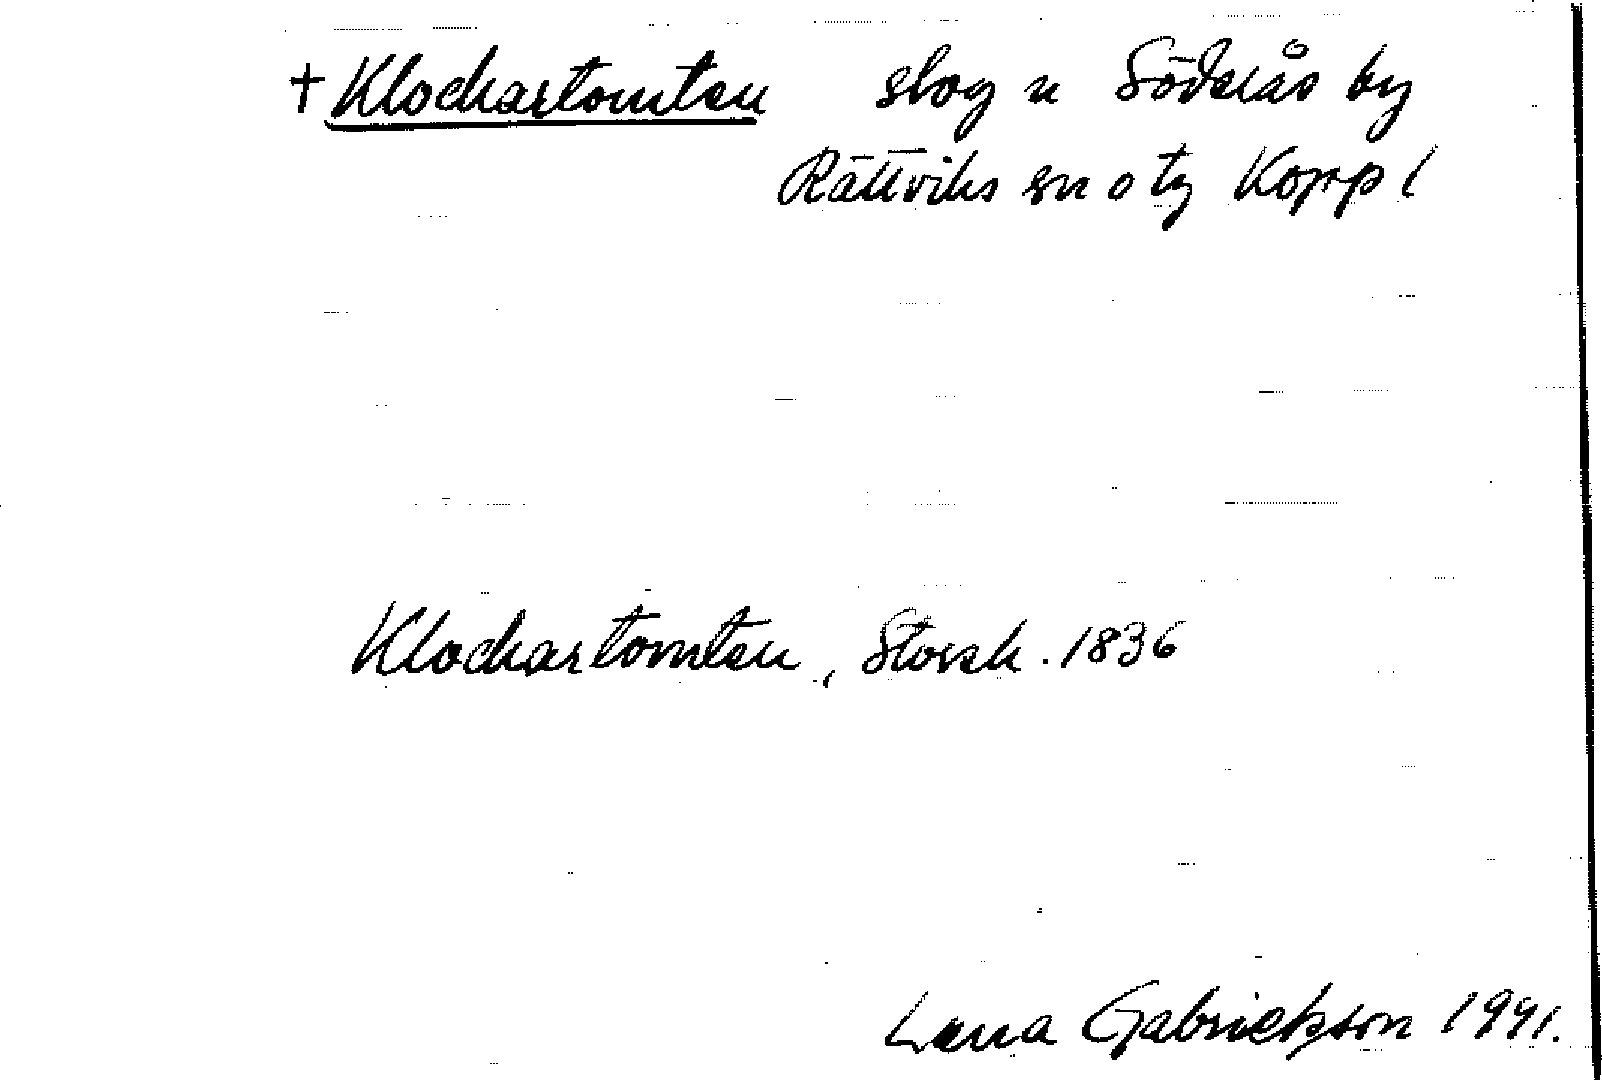 † Klockartomten slog u Söderås by
Rättviks sn o tg Kopp l
Klockartomten, Storsk. 1836
Lena Gabrielsson 1941.